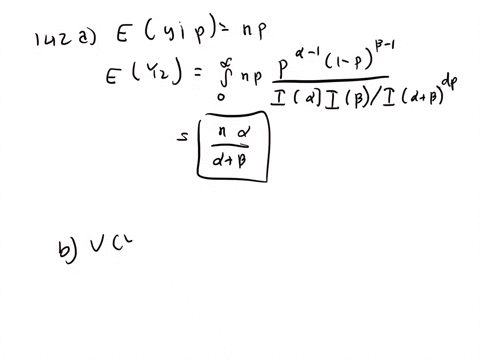 142 a) E ( y i p ) = n p
E ( Y2 ) = ∫₀^∞ n p p^(α-1) (1-p)^(β-1) / I (α) I (β) / I (α+β) dp
= n α / α+β
b) V (Y